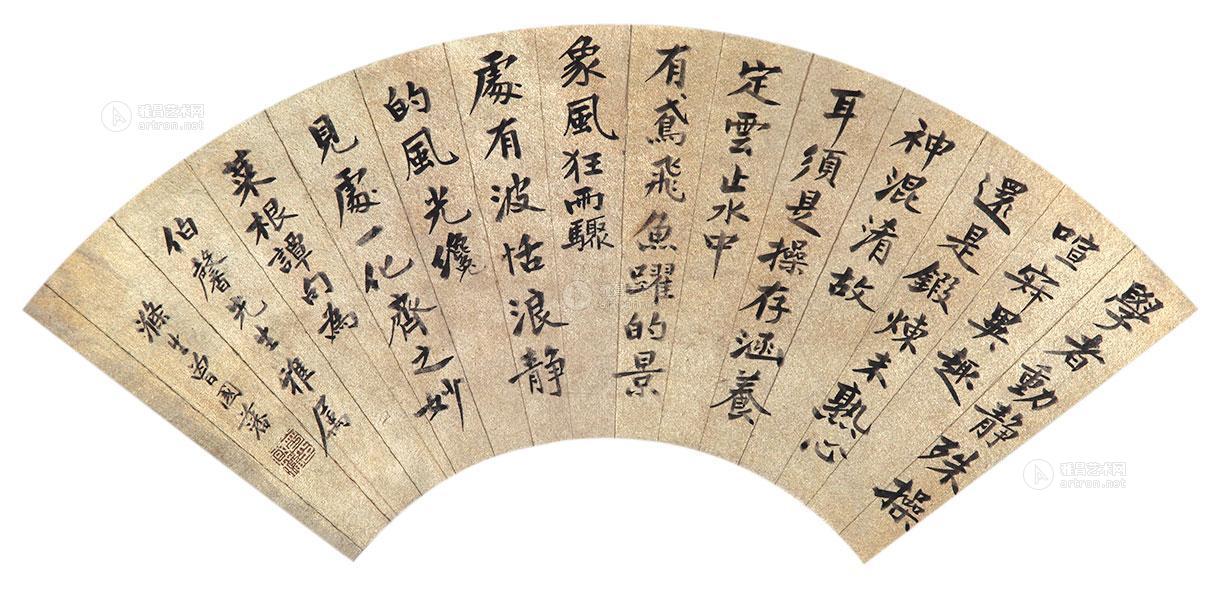 學者動靜殊操
喧寂異趣
還是鍛煉未熟心
神混淆故
耳須是操存涵養
定雲止水中
有鳶飛魚躍的景
象風狂雨驟
處有波恬浪靜
的風光纔
見處一化齊之妙
菜根譚句為
伯馨先生雅属
滌生曾國藩
雅昌艺术网
artron.net
雅昌艺术网
artron.net
雅昌艺术网
artron.net